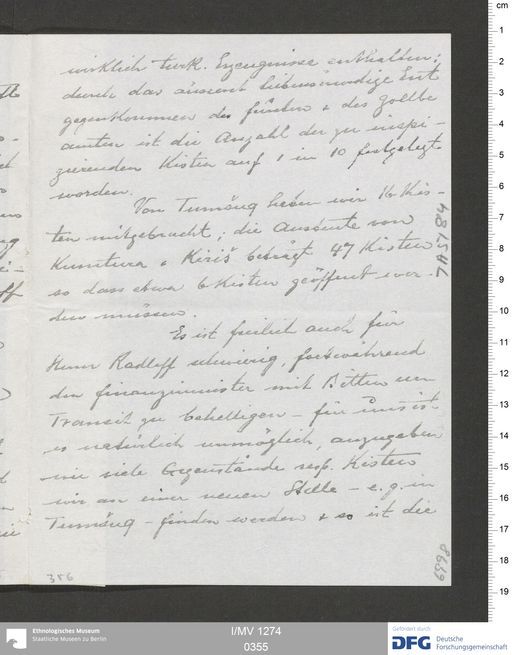 wirklich turk. Erzeugnisse enthalten;
durch das äusserst liebenswürdige Ent
gegenkommen des fürsten & des zollbe
amten ist die Anzahl der zu inspi-
zierenden Kisten auf 1 in 10 festgelegt
worden.
Von Tumšuq haben wir 16 Kis-
ten mitgebracht; die Ausbeute von
Kumtura & Kiriš beträgt 47 Kisten
so dass etwa 6 Kisten geöffnet wer-
den müssen.
Es ist freilich auch für
Herrn Radloff schwierig, fortwährend
den finanzminister mit Bitten um
Transit zu behelligen – für uns ist
es natürlich unmöglich, anzugeben
wie viele Gegenstände resp. Kisten
wir an einer neuen Stelle – e.g. in
Tumšuq – finden werden & so ist die
356
6998
cm
1
2
3
4
5
6
7
8
9
10
11
12
13
14
15
16
17
18
19
Ethnologisches Museum
Staatliche Museen zu Berlin
I/MV 1274
0355
Gefördert durch
DFG Deutsche
Forschungsgemeinschaft